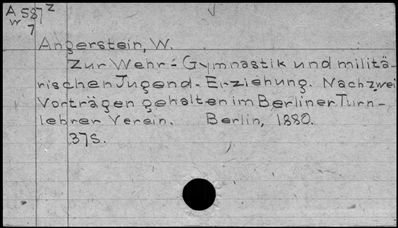 A 587 z
W
7
Angerstein, W.
Zur Wehr-Gymnastik und militä-
rischen Jugend-Erziehung. Nach zwei
Vorträgen gehalten im Berliner Turn-
lehrer Verein. Berlin, 1880.
37S.